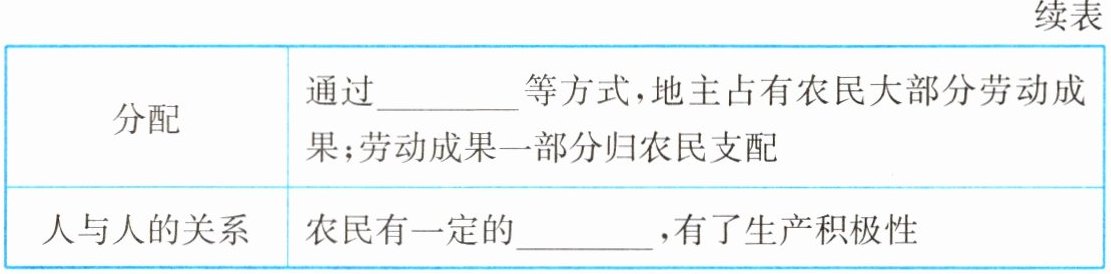 续表
分配
通过________等方式,地主占有农民大部分劳动成
果;劳动成果一部分归农民支配
人与人的关系
农民有一定的________,有了生产积极性